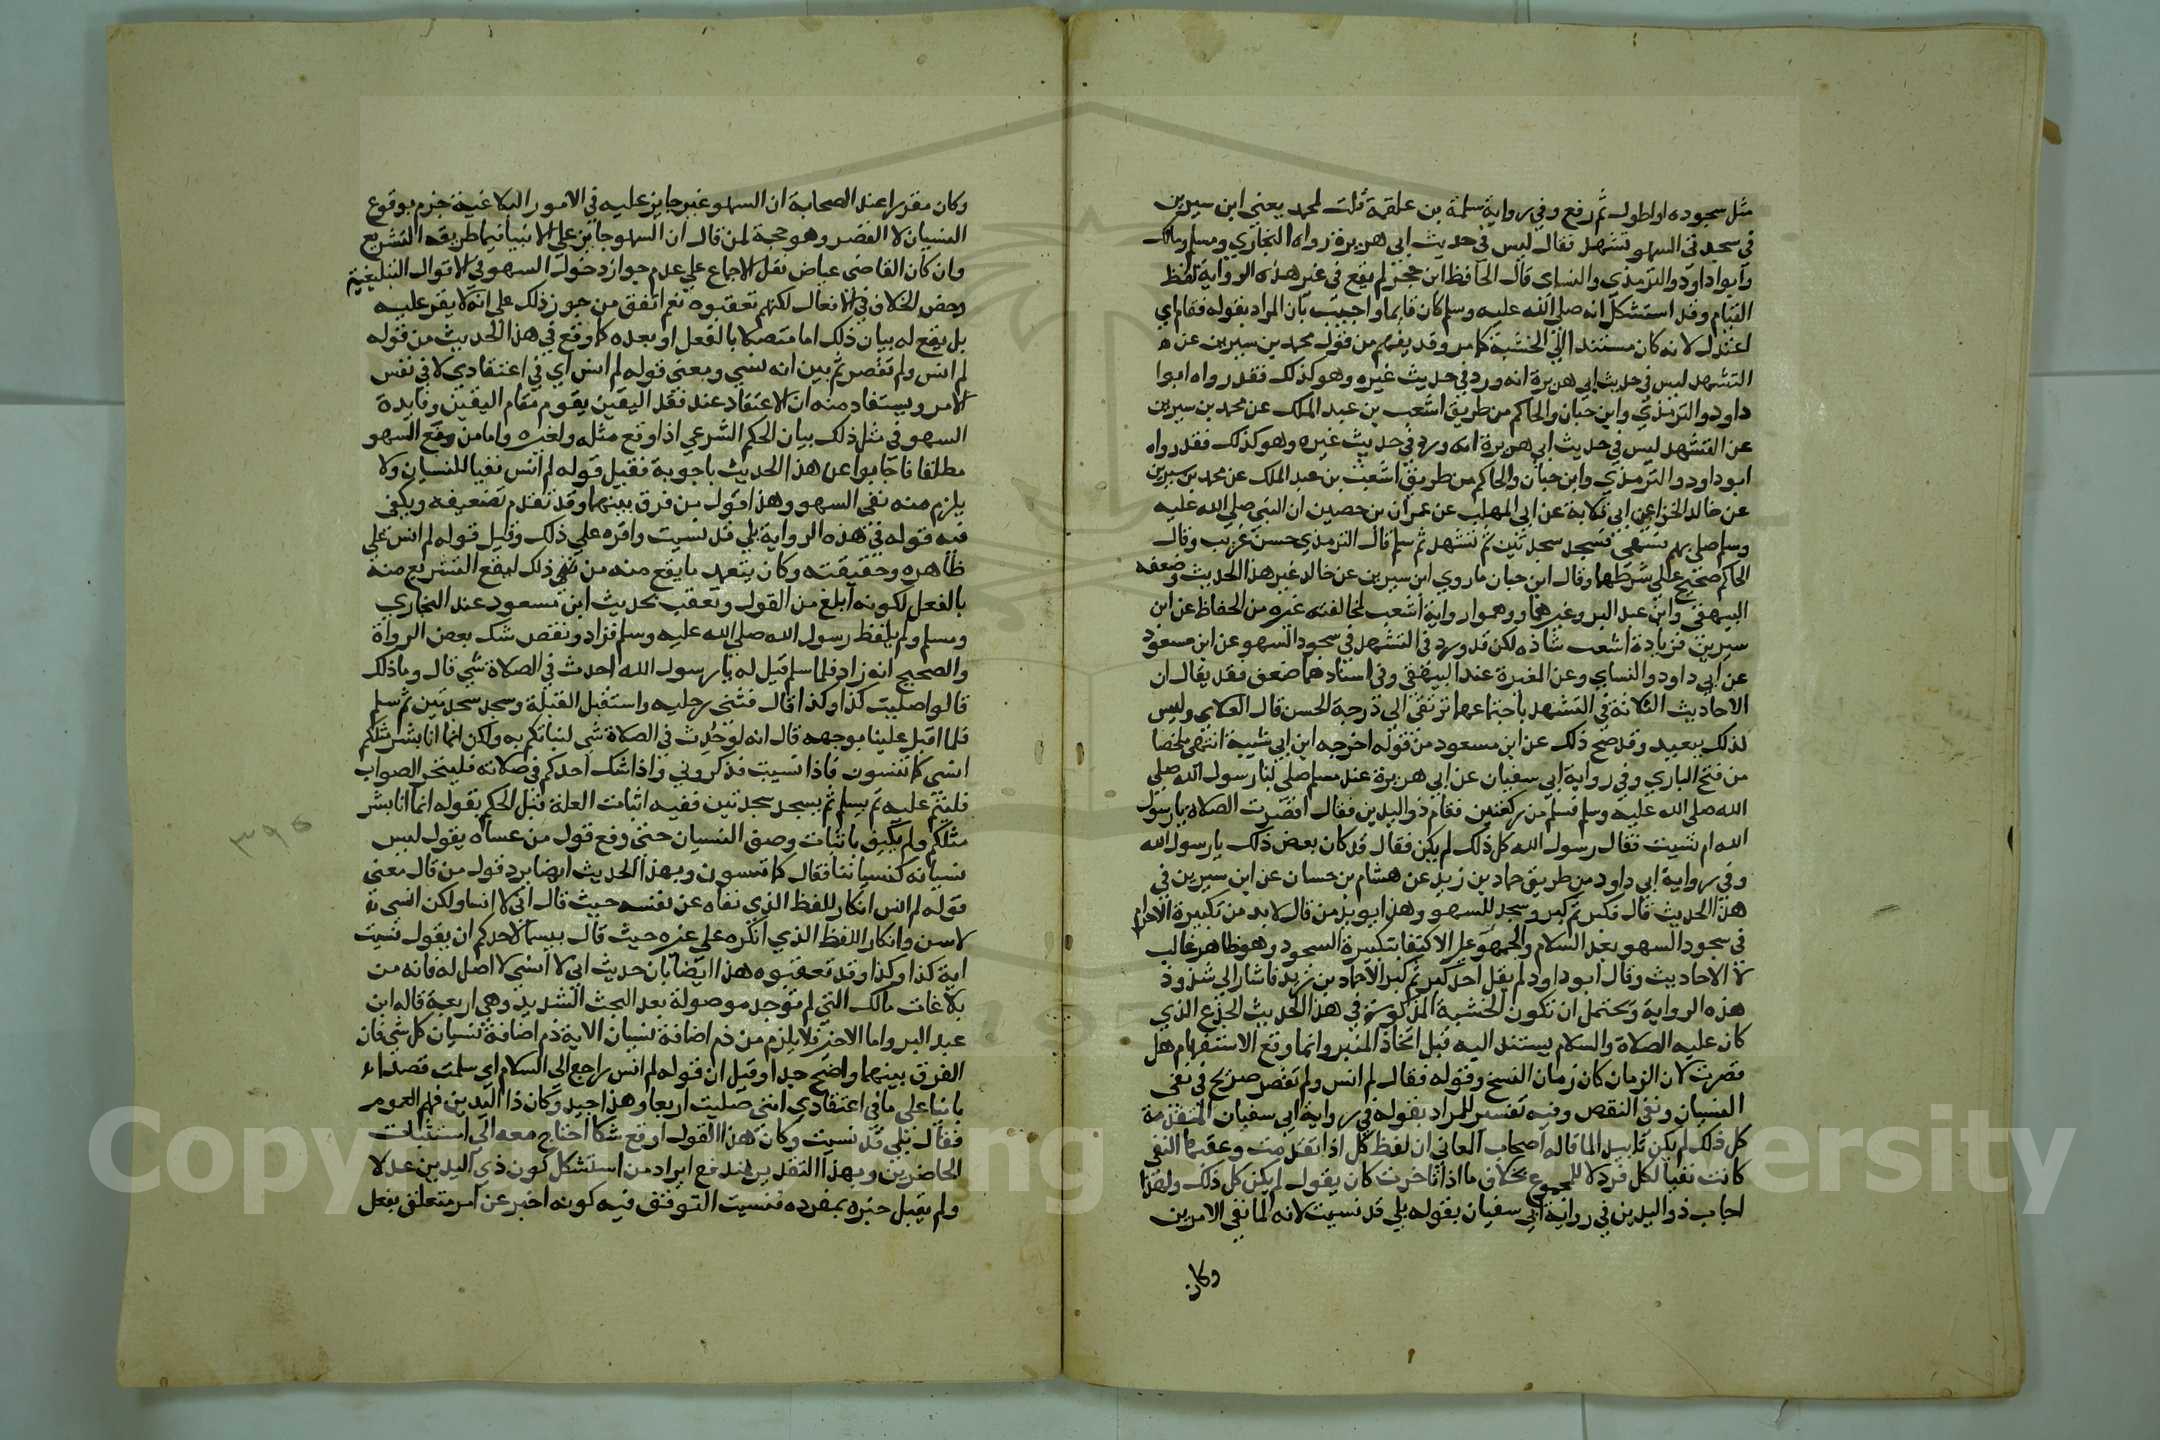 مثل سجوده او اطول ثم رفع وفي رواية سلمة بن علقمة قلت لمحمد يعني ابن سيرين
في سجدتي السهو تشهد فقال ليس في حديث ابي هريرة رواه البخاري ومسلم ومالك
وابوا داود والترمذي والنساي قال الحافظ ابن حجر لم يقع في غير هذه الرواية لفظ
القيام وقد استشكل انه صلى الله عليه وسلم كان قائما واجيب بان المراد بقوله فقام اي
اعتدل لانه كان مستندا الي الخشبة كما مر وقد يفهم من قول محمد بن سيرين عن ه
التشهد ليس في حديث ابي هريرة انه ورد في حديث غيره وهو كذلك فقد رواه ابوا
داود والترمذي وابن حبان والحاكم من طريق اشعب بن عبد الملك عن محمد بن سيرين
عن التشهد ليس في حديث ابي هريرة انه ورد في حديث غيره وهو كذلك فقد رواه
ابو داود والترمذي وابن حبان والحاكم من طريق اشعث بن عبد الملك عن محمد بن سيرين
عن خالد الخزاعن ابي قلابة عن ابي المهلب عن عمران بن حصين ان النبي صلي الله عليه
وسلم صلى بهم فسهي فسجد سجدتين ثم تشهد ثم سلم قال الترمذي حسن غريب وقال
الحاكم صحيح علي شرطهما وقال ابن حبان ما روي ابن سيرين عن خالد غير هذا الحديث وضعفه
البيهقي وابن عبد البر وغيرهما ووهموا رواية اشعب لمخالفته غيره من الحفاظ عن ابن
سيرين فزيادة اشعب شاذه لكن قد ورد في التشهد في سجود السهو عن ابن مسعود
عن ابي داود والنساي وعن المغيرة عند البيهقي وفي اسنادهما ضعف فقد يقال ان
الاحاديث الثلاثة في التشهد باجتماعها ترتقي الي درجة الحسن قال العلاي وليس
لذلك ببعيد وقد صح ذلك عن ابن مسعود من قوله اخرجه ابن ابي شيبة انتهي ملخصا
من فتح الباري وفي رواية ابي سفيان عن ابي هريرة عند مسلم صلى لنا رسول الله صلي
الله صلي الله عليه وسلم فسلم من ركعتين فقام ذو اليدين فقال اقصرت الصلاة يا رسول
الله ام نسيت فقال رسول الله كل ذلك لم يكن فقال قد كان بعض ذلك يا رسول الله
وفي رواية ابي داود من طريق حماد بن زيد عن هشام بن حسان عن ابن سيرين في
هذا الحديث قال فكبر ثم كبر وسجد للسهو وهذا يويد من قال لا بد من تكبيرة الاحرام
في سجود السهو بعد السلام والجمهور على الاكتفا بتكبيرة السجود وهو ظاهر غالب
لا الاحاديث وقال ابو داود لم يقل احد كبر ثم كبر الا حماد بن زيد فاشار الي شذوذ
هذه الرواية ويحتمل ان تكون الخشبة المذكورة في هذا الحديث الجذع الذي
كان عليه الصلاة والسلام يستند اليه قبل اتخاذ المنبر وانما وقع الاستفهام هل
قصرت لان الزمان كان زمان النسخ وقوله فقال لم انس ولم تقصر صريح في نفي
النسيان ونفي النقص وفيه تفسير للمراد بقوله في رواية ابي سفيان المتقدمة
كل ذلك لم يكن تاييد الما قاله اصحاب المعاني ان لفظ كل اذا تقدمت وعقبها النفي
كانت نفيا لكل فرد لا للمجموع بخلاف ما اذا تاخرت كان يقول لم يكن كل ذلك ولهذا
اجاب ذو اليدين في رواية ابي سفيان بقوله بلي قد نسيت لانه لما نفي الامرين
وكان
وكان مقررا عند الصحابة ان السهو غير جايز عليه في الامور البلاغية جزم بوقوع
النسيان لا القصر وهو حجة لمن قال ان السهو جايز علي الانبيا فيما طريقه التشريع
وان كان القاضي عياض نقل الاجماع علي عدم جواز دخول السهو في الاقوال التبليغية
وخص الخلاف في الافعال لكنهم تعقبوه نعم اتفق من جوز ذلك علي انه لا يقر عليه
بل يقع له بيان ذلك اما متصلا بالفعل او بعده كما وقع في هذا الحديث من قوله
لم انس ولم تقصر ثم بين انه نسي ومعني قوله لم انس اي في اعتقادي لا في نفس
الامر ويستفاد منه ان الاعتقاد عند فقد اليقين يقوم مقام اليقين وفايدة
السهو في مثل ذلك بيان الحكم الشرعي اذا وقع مثله ولغيره واما من وقع السهو
مطلقا فاجابوا عن هذا الحديث باجوبة فقيل قوله لم انس نفيا للنسيان ولا
يلزم منه نفي السهو وهذا قول من فرق بينهما وقد تقدم تضعيفه ويكفي
فيه قوله في هذه الرواية بلي قد نسيت واقره علي ذلك وقيل قوله لم انس علي
ظاهره وحقيقته وكان يتعمد ما يقع منه من نفي ذلك ليقع التشريع منه
بالفعل لكونه ابلغ من القول وتعقب بحديث ابن مسعود عند البخاري
ومسلم ولم يلفظ رسول الله صلي الله عليه وسلم فزاد ونقص شك بعض الرواة
والصحيح انه زاد فلما سلم قيل له يا رسول الله احدث في الصلاة شي قال وما ذلك
قالوا صليت كذا وكذا قال فثني رجليه واستقبل القبلة وسجد سجدتين ثم سلم
فلما اقبل علينا بوجهه قال انه لو حدث في الصلاة شي لنباتكم به ولكن انما انا بشر مثلكم
انسي كما تنسون فاذا نسيت فذكروني واذا شك احدكم في صلاته فليتحر الصواب
فليتم عليه ثم يسلم ثم يسجد سجدتين ففيه اثبات العلة قبل الحكم بقوله انما انا بشر
مثلكم ولم يكتف باثبات وصف النسيان حتي دفع قول من عساه يقول ليس
نسيانه كنسياننا فقال كما تنسون وبهذا الحديث ايضا يرد قول من قال معني
قوله لم انس انكار للفظ الذي نفاه عن نفسه حيث قال اني لا انسا ولكن انسي نة
لاسن وانكار اللفظ الذي انكره علي غيره حيث قال بيسما لاحدكم ان يقول نسيت
اية كذا وكذا وقد تعقبوه هذا ايضا بان حديث اني لا انسي لا اصل له فانه من
بلاغات مالك التي لم توجد موصولة بعد البحث الشديد وهي اربعة قاله ابن
عبد البر واما الاخر فلا يلزم من ذم اضافة نسيان الاية ذم اضافة نسيان كل شي فان
الفرق بينهما واضح جدا وقيل ان قوله لم انس راجع الى السلام اي سلمت قصدا
بانيا علي ما في اعتقادي انني صليت اربعا وهذا جيد وكان ذا اليدين فهم العموم
فقال بلي قد نسيت وكان هذا القول اوقع شكا احتاج معه الي استثبات
الحاضرين وبهذا التقدير يندفع ايراد من استشكل كون ذي اليدين عدلا
ولم يقبل خبره بمفرده فنسيت التوقف فيه كونه اخبر عن امر متعلق بفعل
٣٩٥
Copyright © King Saud University